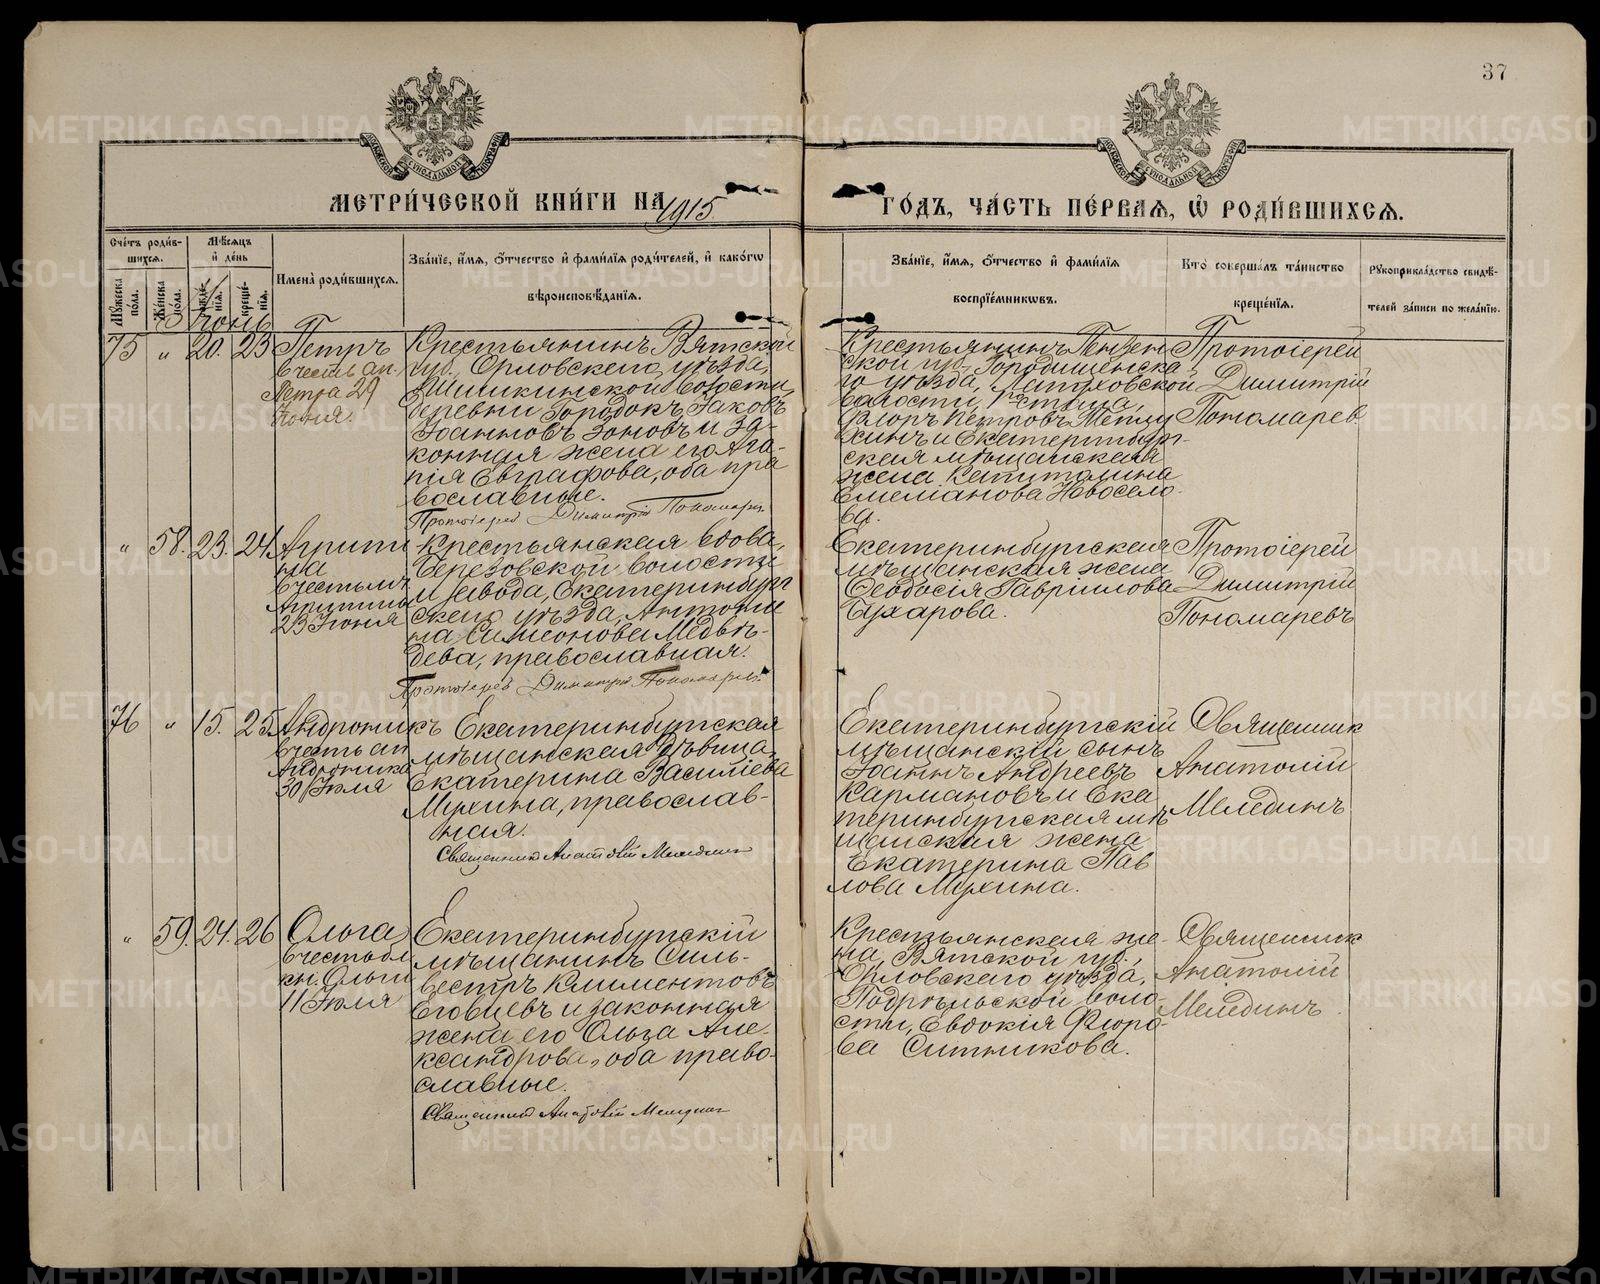 37
МОСКОВСКОЙ СѴНОДАЛЬНОЙ ТИПОГРАФІИ
МОСКОВСКОЙ СѴНОДАЛЬНОЙ ТИПОГРАФІИ
МЕТРИ́ЧЕСКОЙ КНИ́ГИ НА 1915
ГО́ДЪ, ЧА́СТЬ ПЕ́РВАЯ, Ѡ РОДИ́ВШИХСЯ.
Сче́тъ роди́в-
шихся.
Мꙋжеска
по́ла.
Же́нска
по́ла.
Мѣ́сяцъ
и҆ де́нь
рожде́-
нїя.
креще́-
нїя.
И҆мена̀ роди́вшихся.
Зва́нїе, и҆́мя, ѻ҆́тчество и҆ фами́лїя роди́телей, и҆ како́гѡ
вѣроисповѣ́данїя.
Зва́нїе, и҆́мя, ѻ҆́тчество и҆ фами́лїя
воспрїе́мникѡвъ.
Кто̀ соверша́лъ та́инство
креще́нїя.
Рꙋкоприкла́дство свидѣ́-
телей за́писи по жела́нїю.
Іюнь
75 " 20. 23
Петръ
въ честь ап.
Петра 29
Іюня.
Крестьянинъ Вятской
губ., Орловскаго уѣзда,
Шишкинской волости,
деревни Городокъ, Іаковъ
Іоанновъ Зоновъ и за-
конная жена его Ага-
пія Евграфова, оба пра
вославные.
Протоіерей Димитрій Пономаревъ
Крестьянинъ Пензен
ской гу. Городищенска-
го уѣзда,
волости,
Флоръ Петровъ
хинъ и Екатеринбург-
ская мѣщанская
жена Капитолина
Емеліанова Новосело-
ва.
Протоіерей
Димитрій
Пономарев
" 58. 23. 24
Агрипи
на
въ честь мч.
Агрипины
23 Іюня
Крестьянская вдова,
Березовской волости
и завода, Екатеринбург
скаго уѣзда, Антони
на Симеонова Медвѣ-
дева, православная.
Протоіерей Димитрій Пономаревъ
Екатеринбургская
мѣщанская жена
Ѳеодосія Гавріилова
Бухарова.
Протоіерей
Димитрій
Пономаревъ
76 " 15. 25
Андроникъ
въ честь ап
Андроника
30 Іюля
Екатеринбургская
мѣщанская дѣвица
Екатерина Василіева
Мухина, православ-
ная.
Священникъ Анатолій Мелединъ
Екатеринбургскій
мѣщанскій сынъ
Іоаннъ Андреевъ
Кармановъ и Ека
теринбургская мѣ
щанская жена
Екатерина Пав
лова Мухина.
Священник
Анатолій
Мелединъ
" 59. 24. 26
Ольга
въ честь бл.
кн. Ольги
11 Іюля
Екатеринбургскій
мѣщанинъ Силь-
вестръ Климентовъ
Еговцевъ и законная
жена его Ольга Але-
ксандрова, оба право-
славные.
Священникъ Анатолій Мелединъ
Крестьянская же-
на, Вятской губ.,
Орловскаго уѣзда,
Подрѣльской воло-
сти, Евдокія Флоро-
ва Ситникова.
Священник
Анатолій
Мелединъ
METRIKI.GASO-URAL.RU